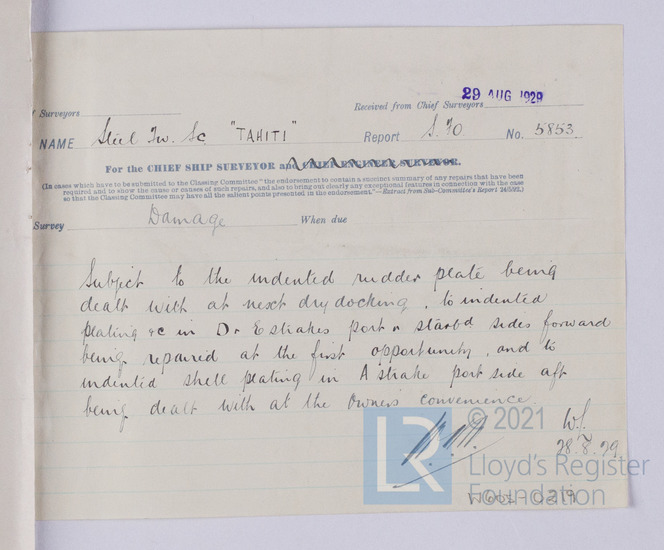 29 AUG 1929
f Surveyors Received from Chief Surveyors
NAME Steel Tw. Sc "TAHITI" Report S. FO No. 5853
For the CHIEF SHIP SURVEYOR and CHIEF ENGINEER SURVEYOR.
(In cases which have to be submitted to the Classing Committee "the endorsement to contain a succinct summary of any repairs that have been
required and to show the cause or causes of such repairs, and also to bring out clearly any exceptional features in connection with the case
so that the Classing Committee may have all the salient points presented in the endorsement."—Extract from Sub-Committee's Report 24/5/92.)
Survey Damage When due
Subject to the indented rudder plate being
dealt with at next drydocking, to indented
plating &c in D & E strakes port & starbd sides forward
being repaired at the first opportunity, and to
indented shell plating in A strake port side aft
being dealt with at the Owners' convenience
28.8.29.
LR © 2021
Lloyd's Register
Foundation
0219